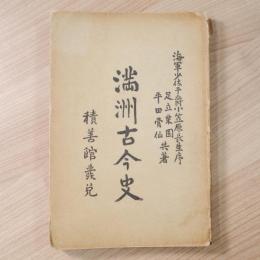 海軍少佐子爵小笠原長生序
足立栗園
平田骨仙 共著
満洲古今史
積善館發兌